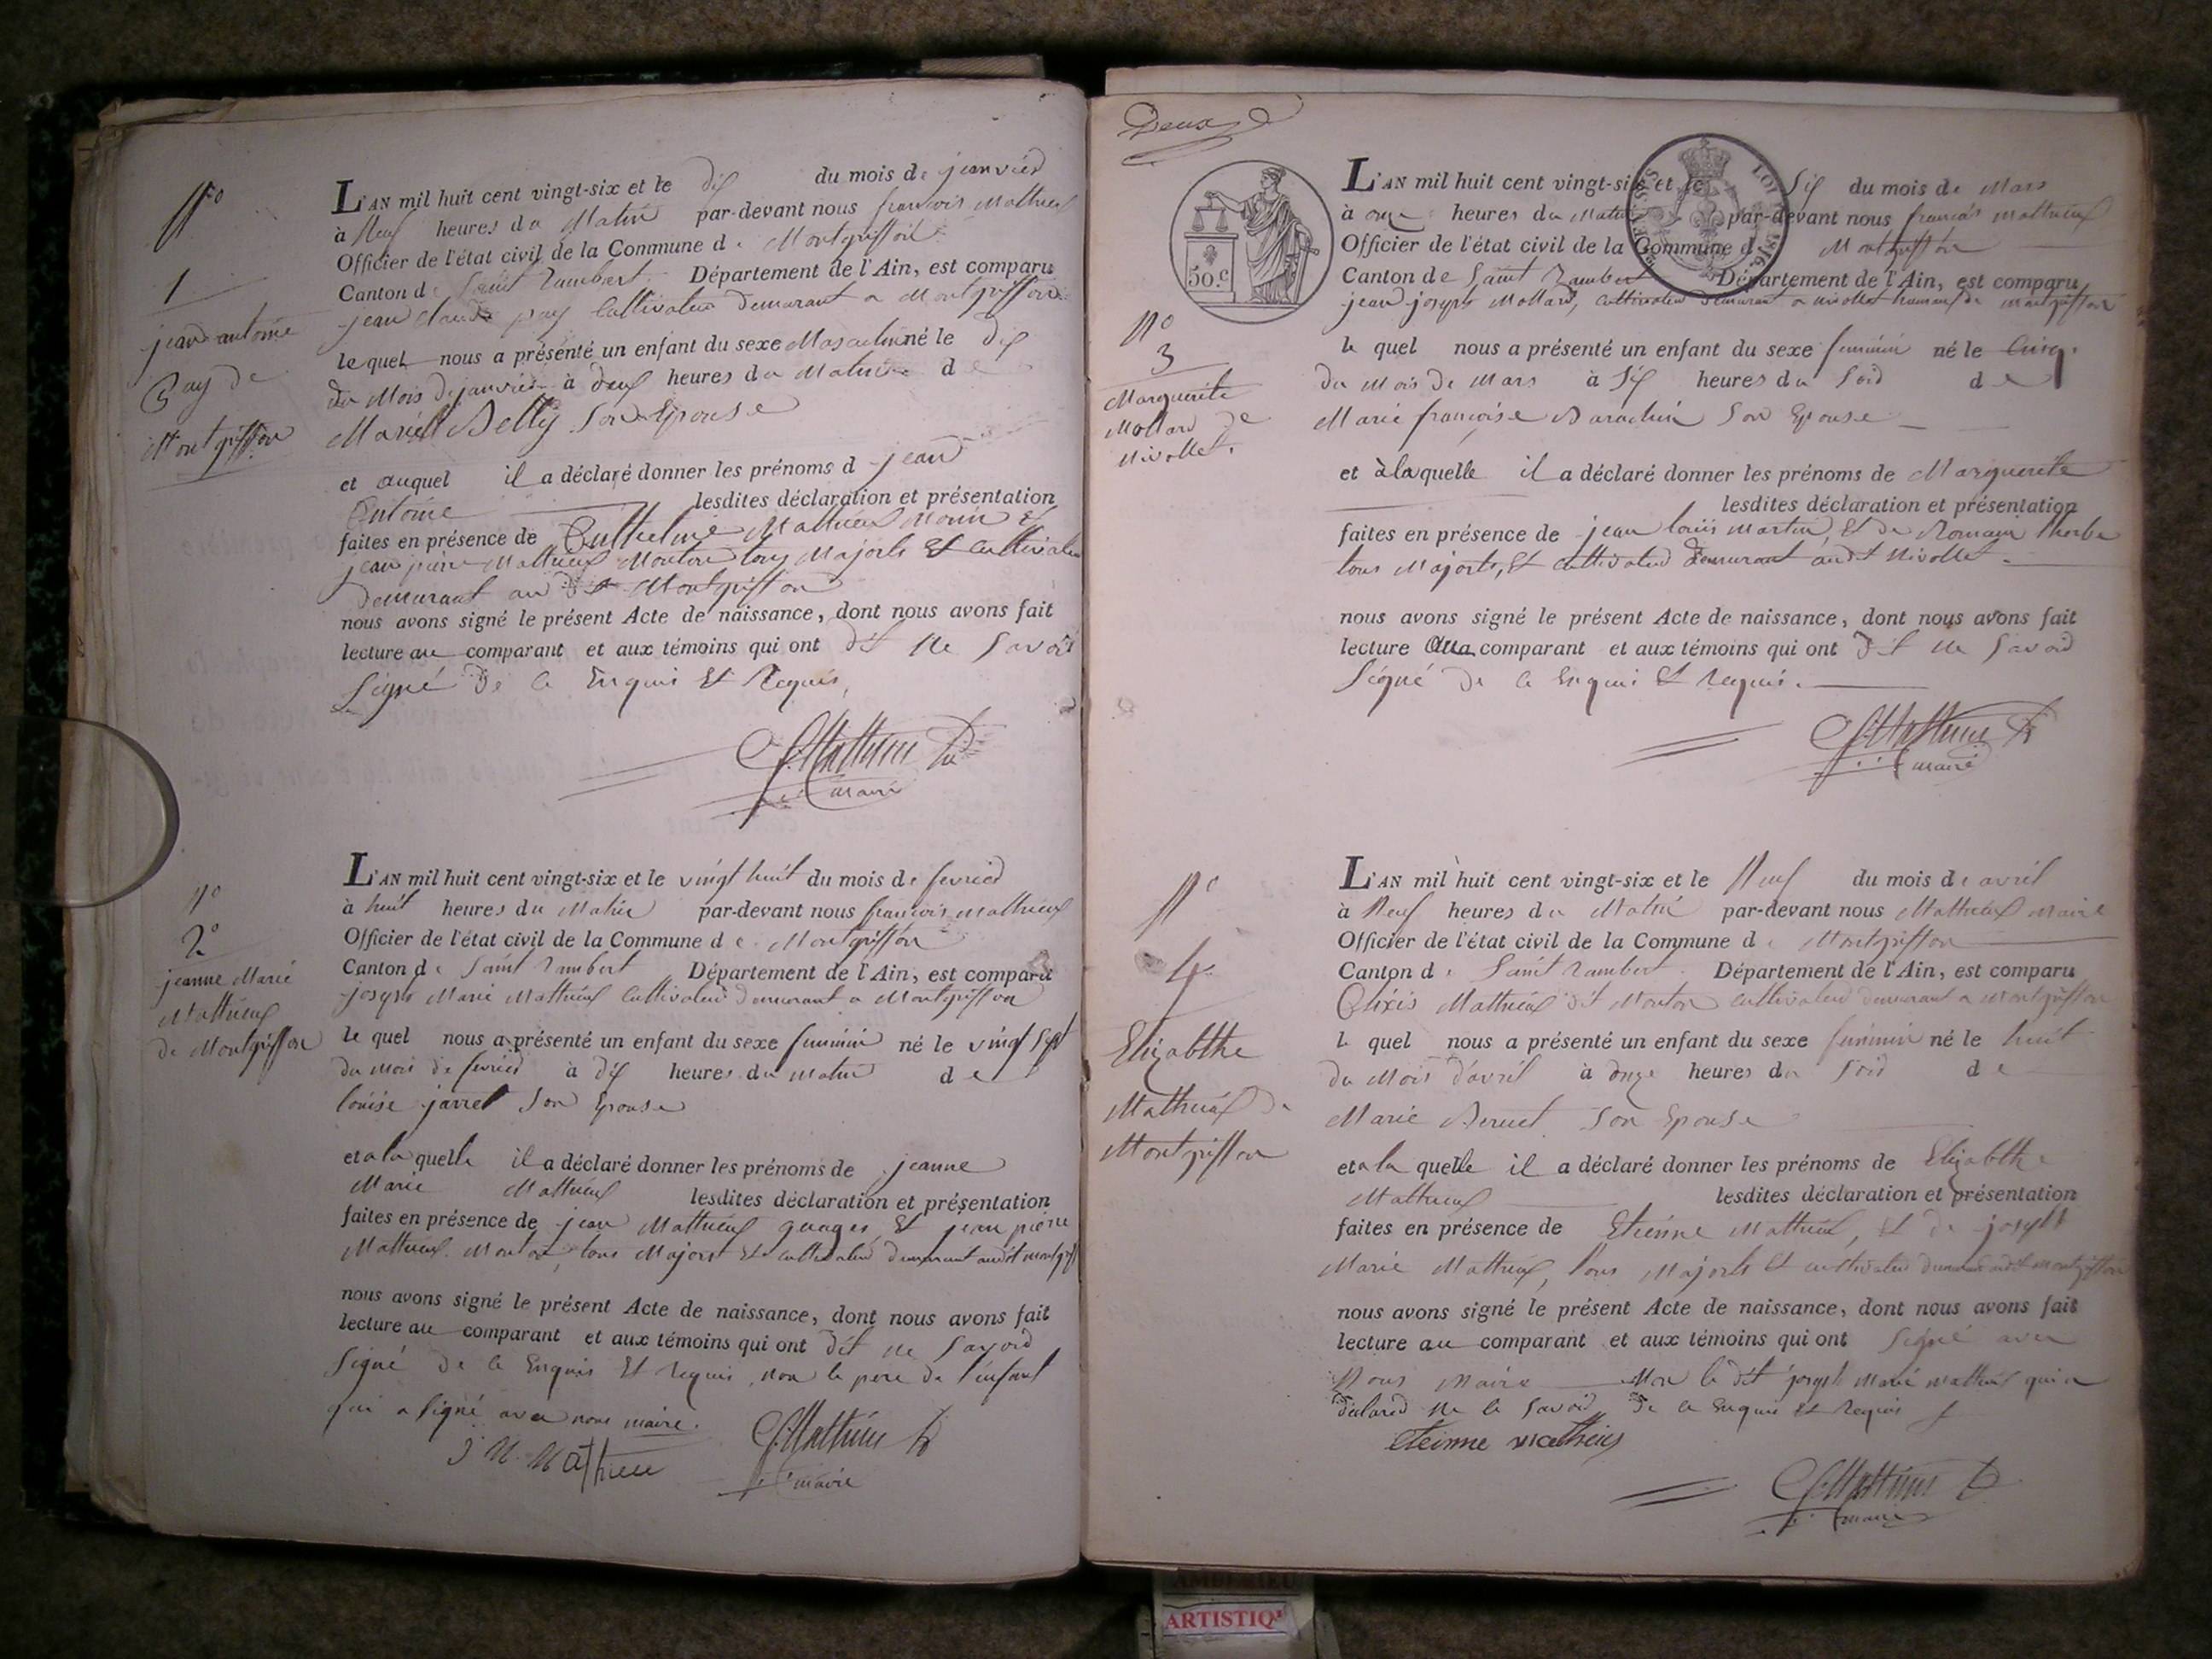 N.o
1
jean antoine
Pay de
Montgriffon
L'AN mil huit cent vingt-six et le dix du mois de janvier
à Neuf heures du Matin par-devant nous françois Mathieux
Officier de l'état civil de la Commune de Montgriffon
Canton de Saint Rambert Département de l'Ain, est comparu
jean claude pay Cultivateur demeurant a Montgriffon
lequel nous a présenté un enfant du sexe Masculin né le dix
du Mois de janvier à deux heures du Matin de
Marie Belly Son Epouse
et auquel il a déclaré donner les prénoms d jean
Antoine lesdites déclaration et présentation
faites en présence de Mathieux Morin et
jean pierre Mathieux Mouton tous Majorts Et Cultivateur
demeurant audit Montgriffon
nous avons signé le présent Acte de naissance, dont nous avons fait
lecture au comparant et aux témoins qui ont dit Ne Savoir
Signé de ce Enquis Et Requis,
f. Mathieux
maire
N.o
2.o
jeanne Marie
Mathieux
de Montgriffon
L'AN mil huit cent vingt-six et le vingt huit du mois de fevried
à huit heures du Matin par-devant nous françois Mathieux
Officier de l'état civil de la Commune de Montgriffon
Canton de Saint Rambert Département de l'Ain, est comparu
joseph Marie Mathieux Cultivateur demeurant a Montgriffon
le quel nous a présenté un enfant du sexe feminin né le vingt sept
du mois de fevried à dix heures du matin de
louise jarret Son Epouse
et a la quelle il a déclaré donner les prénoms de jeanne
Marie Mathieux lesdites déclaration et présentation
faites en présence de jean Mathieux et jean pierre
Mathieux Mouton, tous Majort Et cultivateur demeurant audit montgriff
nous avons signé le présent Acte de naissance, dont nous avons fait
lecture au comparant et aux témoins qui ont dit ne Savoir
Signé de ce Enquis Et requis, non le pere de l'enfant
qui a Signé avec nous maire.
J M Mathieu f. Mathieux
maire
Deux
50.c
LOI 1816.
N.o
3
Marguerite
Mollard de
Nivollet.
L'AN mil huit cent vingt-six et le Six du mois de Mars
à onze heures du Matin par-devant nous françois Mathieux
Officier de l'état civil de la Commune d Montgriffon
Canton de Saint Rambert Département de l'Ain, est comparu
jean joseph Mollard, Cultivateur demeurant a nivollet hameau de Montgriffon
le quel nous a présenté un enfant du sexe feminin né le Cinq.
du Mois de Mars à Six heures du Soir de
Marie françoise Barachin Son Epouse
et à laquelle il a déclaré donner les prénoms de Marguerite
lesdites déclaration et présentation
faites en présence de jean louis Martin, Et de Romain
tous Majorts, Et Cultivateur demeurant audit Nivollet.
nous avons signé le présent Acte de naissance, dont nous avons fait
lecture au comparant et aux témoins qui ont dit ne Savoir
Signé de ce Enquis Et requis.
f. Mathieux
maire
N.o
4.
Elizabthe
Mathieux de
Montgriffon
L'AN mil huit cent vingt-six et le Neuf du mois de avril
à Neuf heures du Matin par-devant nous Mathieux Maire
Officier de l'état civil de la Commune de Montgriffon
Canton de Saint Rambert Département de l'Ain, est comparu
Alixis Mathieux dit Mouton Cultivateur demeurant a Montgriffon
le quel nous a présenté un enfant du sexe feminin né le huit
du Mois d'avril à onze heures du Soir de
Marie Son Epouse
et a la quelle il a déclaré donner les prénoms de Elizabthe
Mathieux lesdites déclaration et présentation
faites en présence de Etienne Mathieux, et de joseph
Marie Mathieux, tous Majorts Et cultivateur demeurant audit Montgriffon
nous avons signé le présent Acte de naissance, dont nous avons fait
lecture au comparant et aux témoins qui ont Signé avec
Nous Maire Non le dit joseph Marie Mathieux qui a
déclaré Ne le Savoir de ce Enquis Et Requis
Eteinne matheiu
f. Mathieux
maire
ARTISTIQ